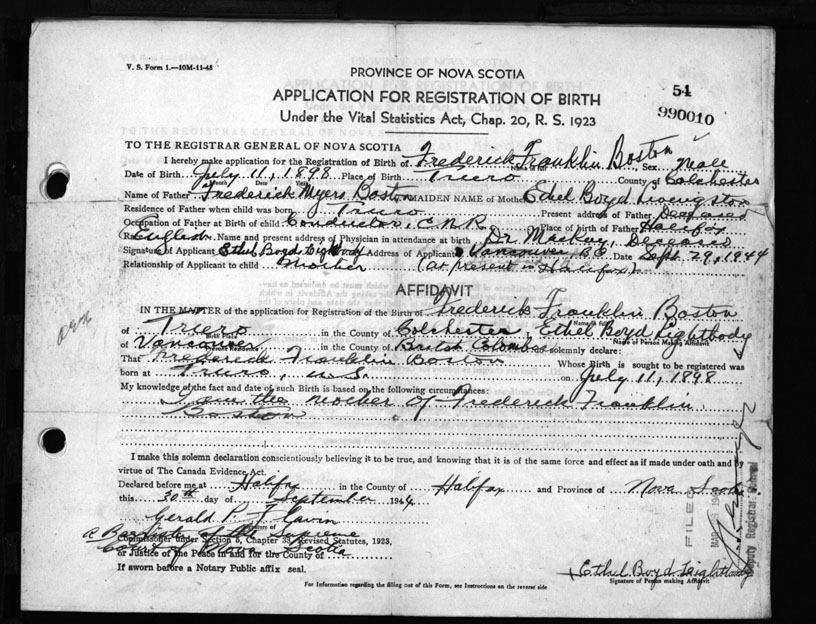 V. S. Form 1.—10M-11-43
PROVINCE OF NOVA SCOTIA
54
APPLICATION FOR REGISTRATION OF BIRTH
990010
Under the Vital Statistics Act, Chap. 20, R. S. 1923
TO THE REGISTRAR GENERAL OF NOVA SCOTIA
I hereby make application for the Registration of Birth of Frederick Franklin Boston Sex, Male
Date of Birth July 11, 1898 Place of Birth Truro County of Colchester
Name of Father Frederick Myers Boston MAIDEN NAME of Mother Ethel Boyd Livingston
Residence of Father when child was born Truro Present address of Father Deceased
Occupation of Father at Birth of child Conductor, C.N.R. Place of birth of Father Halifax
Race English Name and present address of Physician in attendance at birth Dr. Deceased
Signature of Applicant Ethel Boyd Lightbody Address of Applicant Vancouver B.C. Date Sept. 29, 1944
Relationship of Applicant to child Mother (at present in Halifax)
AFFIDAVIT
IN THE MATTER of the application for Registration of the Birth of Frederick Franklin Boston
Name in full
of Truro in the County of Colchester, Ethel Boyd Lightbody
Birth Place
Name of Person Making Affidavit
of Vancouver in the County of British Columbia solemnly declare:
That Frederick Franklin Boston Whose Birth is sought to be registered was
born at Truro, N.S. on July 11, 1898.
My knowledge of the fact and date of such Birth is based on the following circumstances:
I am the mother of Frederick Franklin
Boston
I make this solemn declaration conscientiously believing it to be true, and knowing that it is of the same force and effect as if made under oath and by
virtue of The Canada Evidence Act.
Declared before me at Halifax in the County of Halifax and Province of Nova Scotia
this 30th day of September 1944
Gerald P. Flavin
Signature of
A Barrister of the Supreme
Commissioner under Section 8, Chapter 38, Revised Statutes, 1923,
Court of Nova Scotia
or Justice of the Peace in and for the County of
If sworn before a Notary Public affix seal.
Ethel Boyd Lightbody
Signature of Person making Affidavit
For Information regarding the filling out of this Form, see Instructions on the reverse side
FILED
Deputy Registrar General